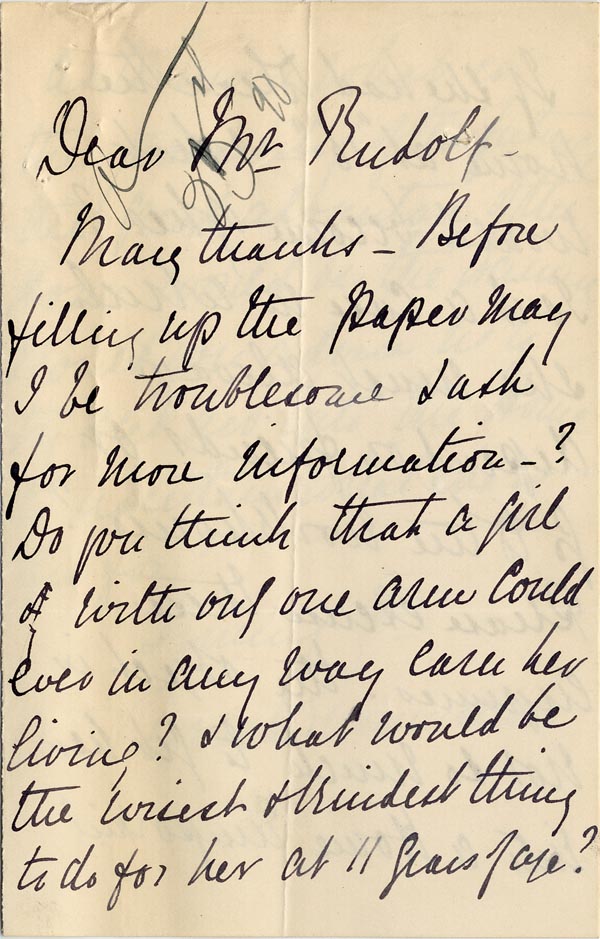 Dear Mr Rudolf -
Many thanks - Before
filling up the paper may
I be troublesome & ask
for more information - ?
Do you think that a girl
with only one arm could
ever in any way earn her
living? & what would be
the wisest & kindest thing
to do for her at 11 years of age?